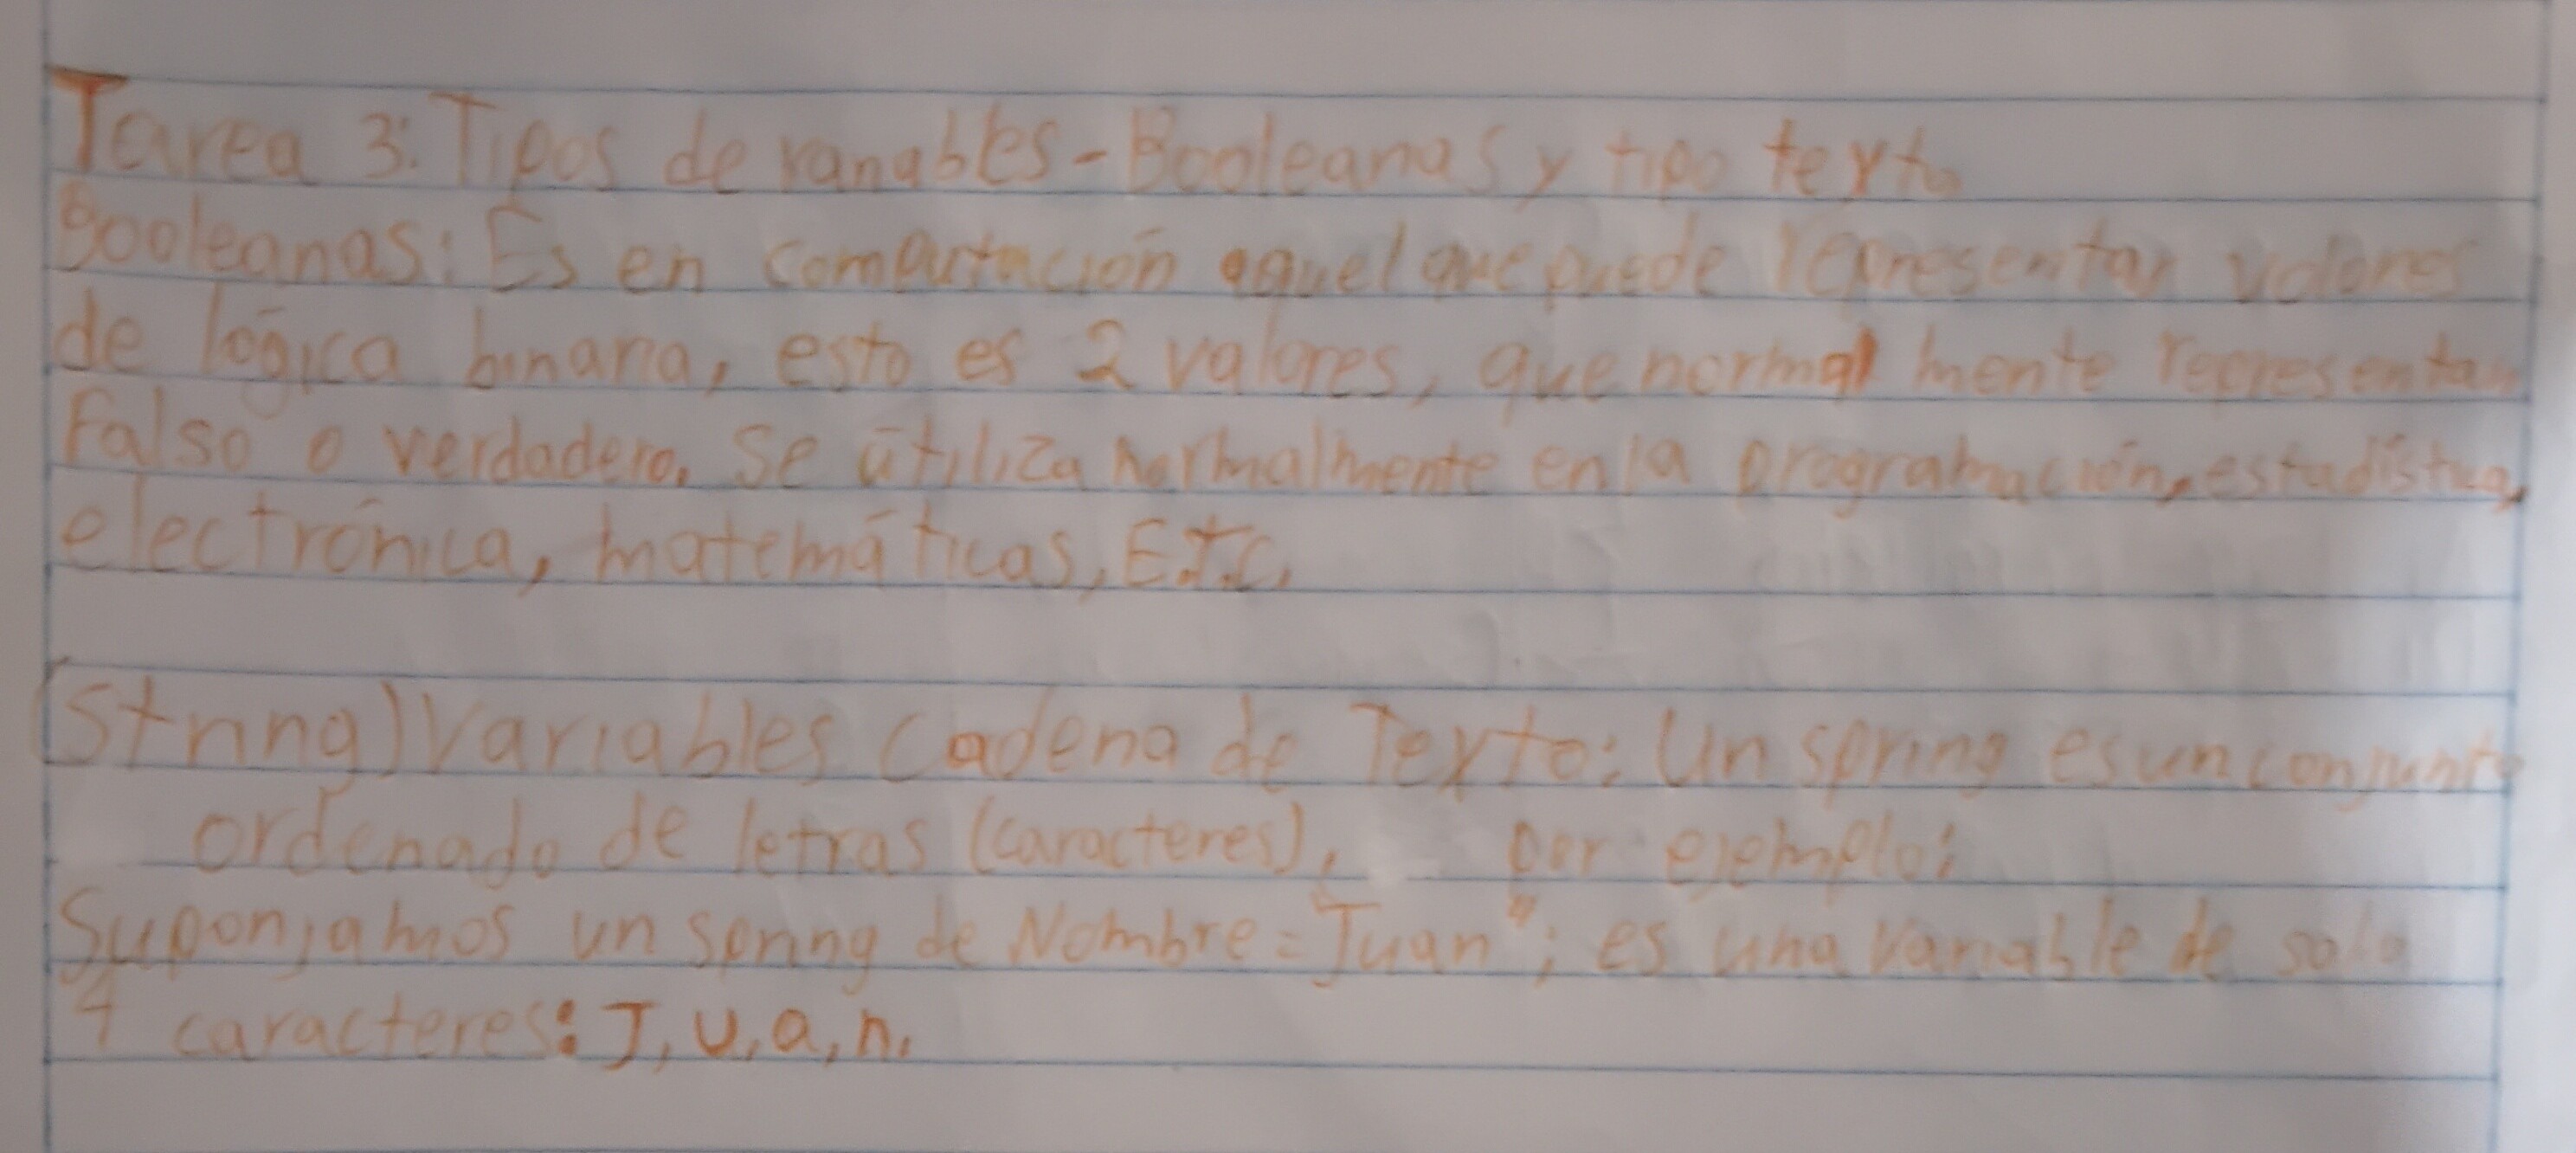 Tarea 3: Tipos de variables - Booleanas y tipo texto
Booleanas: Es en computación aquel que puede representar valores
de lógica binaria, esto es 2 valores, que normal mente representan
Falso o verdadero, Se útiliza normalmente en la programación, estadística,
electrónica, matemáticas, E.T.C.
(String) Variables Cadena de Texto: Un spring es un conjunto
ordenado de letras (caracteres), por ejemplo:
Suponjamos un spring de Nombre = "Juan"; es una variable de solo
4 caracteres: J, u, a, n.